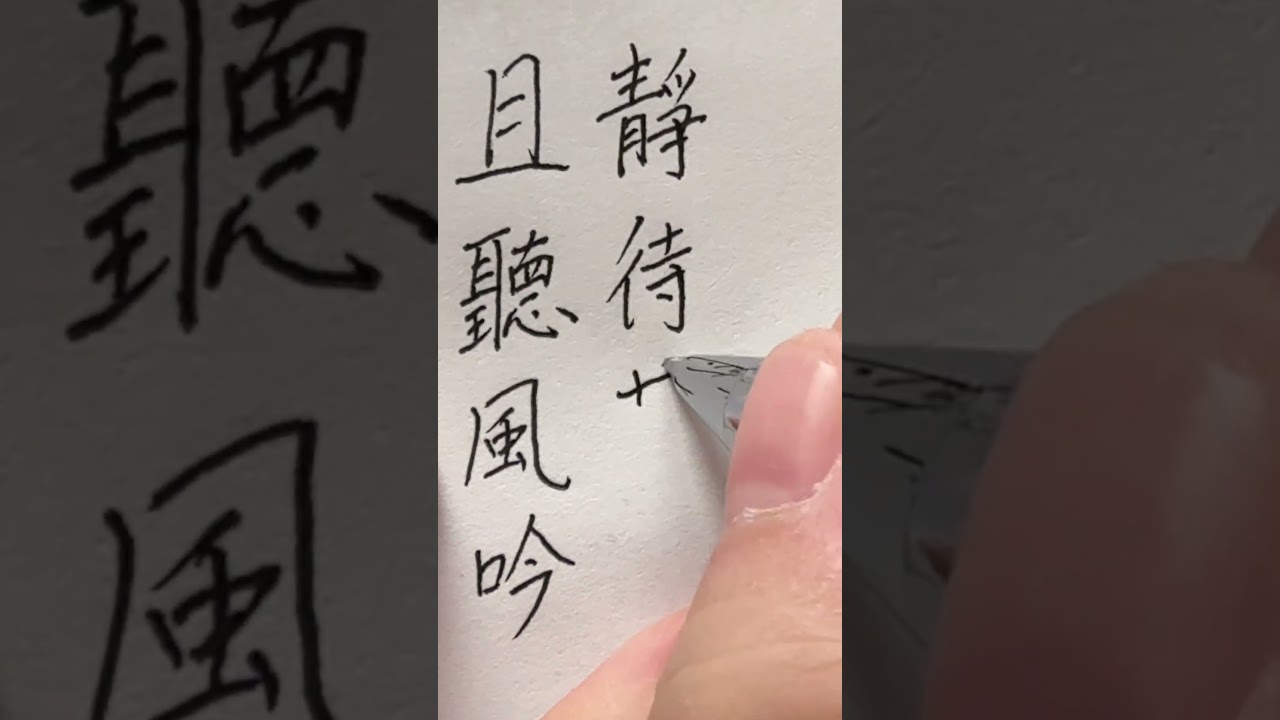 且聽風吟
靜待